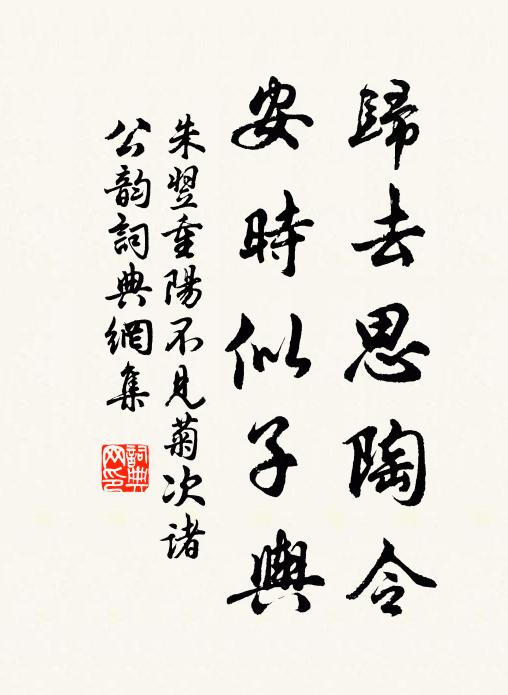 歸去思陶令
安時似子輿
朱翌重陽不見菊次諸
公韵詞典網集
詞典
网印